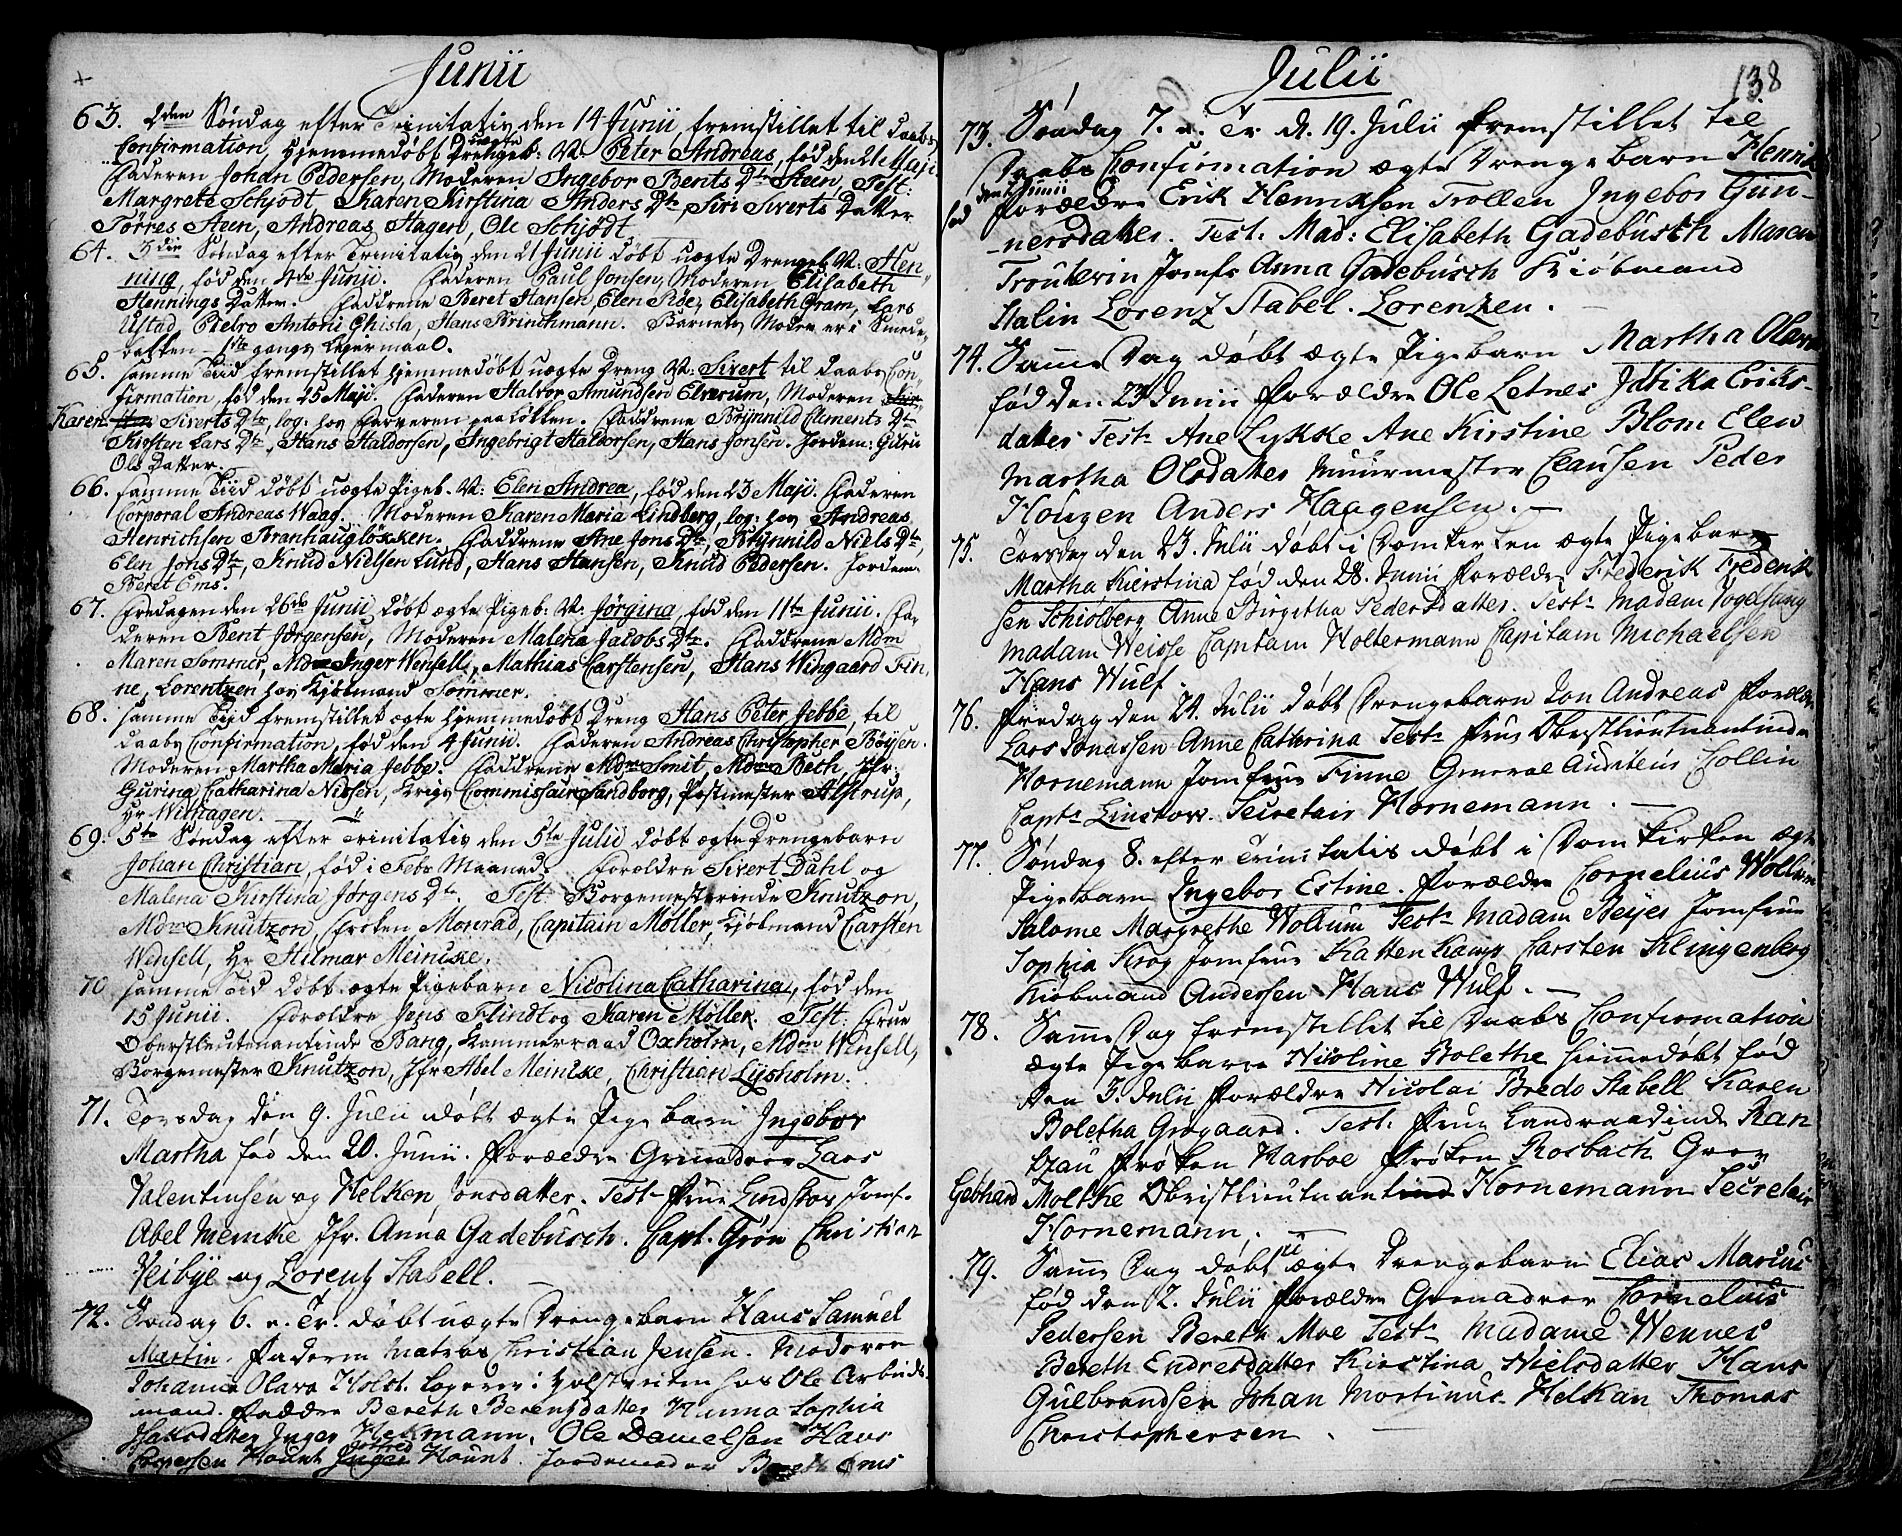 Junii
63. 2den Søndag efter Trinitatis den 14 Junii, fremstillet til Daabs
Confirmation, Hjemmedøbt uægte Drengeb: N: Peter Andreas, fød den 21 Maji.
Faderen Johan Pedersen, Moderen Ingebor Bents Dtr Steen, Test:
Margrete Schjødt, Karen Kirstina Anders Dtr, Siri Siverts Datter
Tørres Steen, Andreas Hagen, Ole Schjødt.
64. 3die Søndag efter Trinitatis den 21 Junii døbt uægte Drengeb: N: Hen-
ning, fød den 4de Junii. Faderen Paul Jonsen, Moderen Elisabeth
Hennings Datter. Faddrene Beret Hansen, Elen Side, Elisabeth Gram, Lars
Ustad, Pietro Antoni Ghisla, Hans Brinchmann. Barnets Moder er i Smede-
bakken 1ste gangs Lejermaal.
65. Samme Tiid fremstillet Hjemmedøbt uægte Dreng N: Sivert til Daabs Con-
firmation, fød den 25 Maji. Faderen Halvor Amundsen Elverum, Moderen
Karen Siverts Dtr, log: hos Farveren paa Løkken. Faddrene Brynnild Clements Dtr
Kirsten Lars Dtr, Hans Haldorsen, Ingebrigt Haldorsen, Hans Jonsen. Jordem: Guru
Ols Datter.
66. Samme Tiid døbt uægte Pigeb. N: Elen Andrea, fød den 23 Maji. Faderen
Corporal Andreas Waag. Moderen Karen Maria Lindberg, log: hos Andreas
Henrichsen Branhaugløkken. Faddrene Ane Jons Dtr, Brynnild Niels Dtr
Elen Jons Dtr, Knud Nielsen Lund, Hans Hansen, Knud Pedersen. Jordem:
Beret Ems.
67. Fredagen den 26de Junii døbt ægte Pigeb: N: Jørgina, fød den 11te Junii. Fa-
deren Bent Jørgensen, Moderen Malena Jacobs Dtr. Faddrene Mdm
Maren Sommer, Mdm Inger Wensell, Mathias Carstensen, Hans Wingaard Fin-
ne, Lorentzen hos Kjøbmand Sommer.
68. Samme Tiid fremstillet ægte Hjemmedøbt Dreng Hans Peter Jebbe, til
Daabs Confirmation, fød den 4 Junii. Faderen Andreas Christopher Bøysen.
Moderen Martha Maria Jebbe. Faddrene Mdm Smit, Mdm Beth, Jfr:
Gurina Catharina Nissen, Krigs Commissair Sandborg, Postmester Alstrup,
Hr Withagen.
69. 5te Søndag efter Trinitatis den 5te Julii døbt ægte Drengebarn
Johan Christian, fød i Febr Maaned. Forældre Sivert Dahl og
Malena Kirstina Jørgens Dtr. Test: Borgemesterinde Knutzon,
Mdm Knutzon, Frøken Monrad, Capitain Möller, Kjøbmand Carsten
Wensell, Hr Hilmar Meincke.
70 Samme Tid døbt ægte Pigebarn Nicolina Catharina, fød den
15 Junii. Forældre Jens Flindt og Karen Möller. Test: Frue
Oberstleutenantinde Bang, Kammerraad Oxholm, Mdm Wensell,
Borgemester Knutzon, Jfr Abel Meincke, Christian Lysholm.
71. Torsdag den 9. Julii døbt ægte Pige barn Ingebor
Martha fød den 20. Junii. Forældre Grenadeer Lars
Valentinsen og Helken Jonsdatter. Test: Frue Lindstov Jomf.
Abel Meincke Jfr. Anna Gadebusch. Capt. Grön Christian
Veibye og Lorentz Stabell.
72. Søndag 6. e. Tr. døbt uægte Drengebarn Hans Samuel
Martin. Faderen Matros Christian Jensen. Moderen
Johanna Olava Holst. Logerer i Holsteriten hos Ole Arbeids-
mand. Faddere Bereth Berensdatter Hanna Sophia
Halsdatter Inger Heckmann, Ole Danielsen Hans
Hount Hount. Jordemoder Bereth Ems
Julii
138
73. Søndag 7. e. Tr. d. 19. Julii fremstillet til
Daabs Confirmation ægte Drengebarn Henrik
fød Junii Forældre Erik Henriksen Trollen Ingebor Gun-
nersdatter. Test: Mad: Elisabeth Gadebusch Maren
Jomfr Anna Gadebusch Kiøbmand
Stalin Lorenz Stabel. Lorenzen.
74. Samme Dag døbt ægte Pigebarn Martha Olava
fød den 23 Junii Forældre Ole Letnes Eriks-
datter Test: Ane Lykke Ane Kirstine Blom Elen
Martha Olsdatter Muurmester Clausen Peder
Houzen Anders Haagensen.
75. Torsdag den 23. Julii døbt i Domkirken ægte Pigebarn
Martha Kierstina fød den 28. Junii Forældre Frederik Frederik
sen Schiolberg Anne Birgitha Pedersdatter. Test: Madam Vogelsang
Madam Weisse Capitain Holtermann Capitain Michaelsen
Hans Wulf.
76. Fredag den 24. Julii døbt Drengebarn Jon Andreas Forældre
Lars Jonassen Anne Cathrina Test: Frue Obristlieutnantinde
Hornemann Jomfrue Finne General Auditeus Collin
Capt: Linstow. Secretair Hornemann.
77. Søndag 8. efter Trinitatis døbt i Domkirken ægte
Pigebarn Ingebor Estine. Forældre Cornelius Wollum
Salome Margrethe Wollum Test: Madam Beyer Jomfrue
Sophia Krog Jomfrue Kattenkamp Carsten Klingenberg
Kiøbmand Andersen Hans Wulf.
78. Samme Dag fremstillet til Daabs Confirmation
ægte Pigebarn Nicoline Bolethe Hiemmedøbt fød
den 3. Julii Forældre Nicolai Bredo Stabell Karen
Boletha Grøgaard. Test: Frue Landraadinde Ran
tzau Frøken Harboe Frøken Rosbach Grev
Gebhard Moltke Obristlieutnant Hornemann Secretair
Hornemann.
79. Samme Dag døbt ægte Drengebarn Elias Marius
fød den 2. Julii Forældre Grenadeer Cornelius
Pedersen Bereth Moe Test: Madame Wennes
Bereth Endresdatter Kirstina Nielsdatter Hans
Gulbrandsen Johan Mortinus Helkan Thomas
Christophersen.